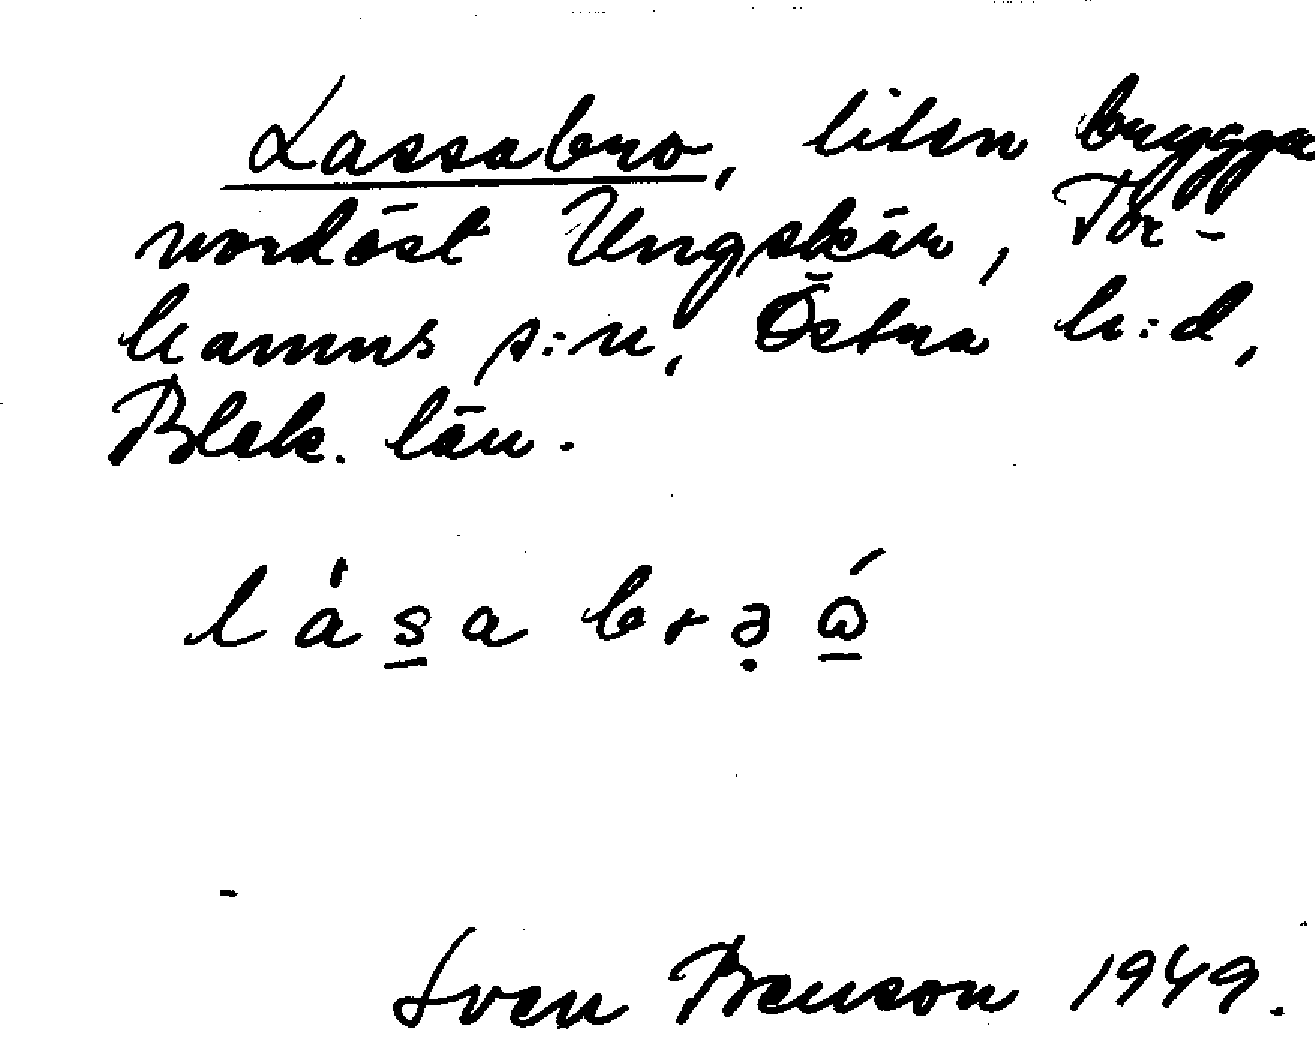 Lassabro, liten brygga
nordöst Ungskär, Tor-
hamns s:n, Östra h:d,
Blek. län.
lásabrə̣ώ̱
Sven Benson 1949.